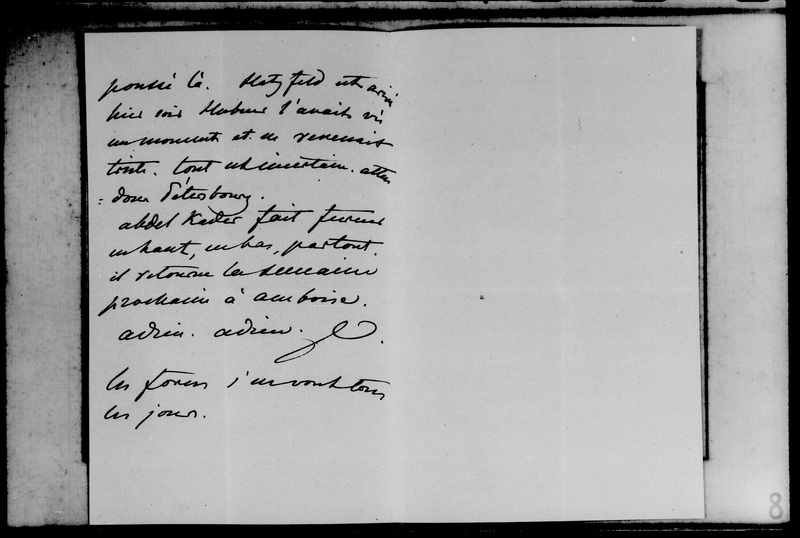 poussé là. Hatzfeld est arrivé
hier soir Hubner l'avait vu
un moment et le revenait
triste. tout est incertain. atten
= dons Pétersbourg.
abdel Kader fait fureur
en haut, en bas, partout.
il retourne la semaine
prochaine à amboise.
adieu. adieu.
les forces s'en vont tous
les jours.
8